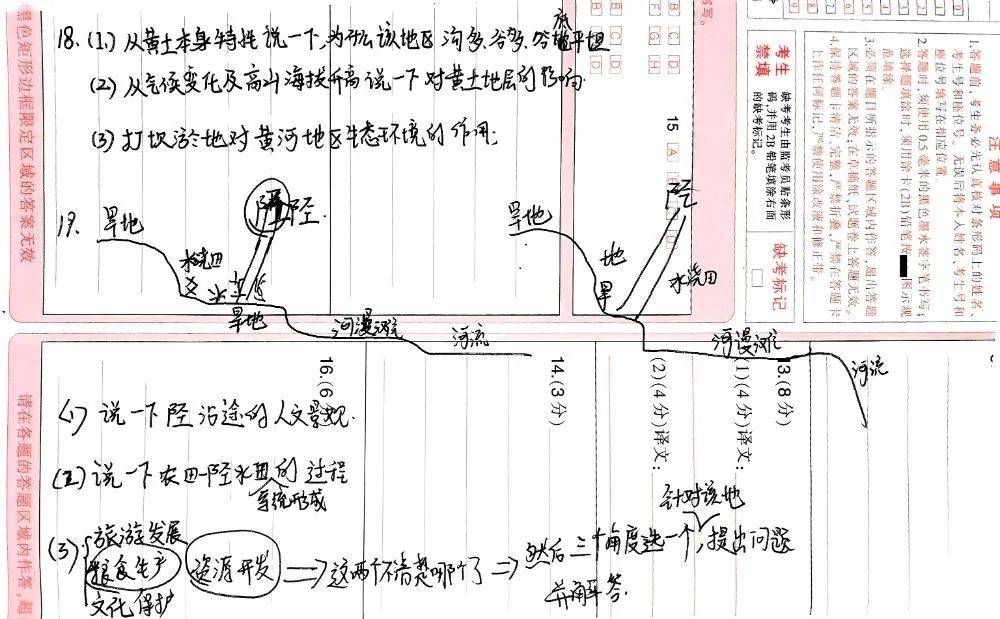 18. (1) 从黄土本身特性说一下,为什么该地区沟多、谷多、谷底平坦
(2) 从气候变化及高山海拔升高说一下对黄土地层的影响
(3) 打坝淤地对黄河地区生态环境的作用.
19. 旱地
陉.
水浇田
旱地
河漫滩
河流
旱地
陉
地
旱
水浇田
河漫滩
河流
(1) 说一下陉沿途的人文景观.
(2) 说一下农田—陉水田的过程
系统形成
(3) 旅游发展
粮食生产
文化保护
资源开发
⇒这两个不清楚哪个了⇒然后三个角度选一个,提出问题
针对该地
并解答.
黑色矩形边框限定区域的答案无效
请在各题的答题区域内作答,超
16.(6
14.(3分)
(2)(4分)译文:
(1)(4分)译文:
13.(8分)
15 [A]
书写。
考生禁填
缺考考生由监考员贴条形
码,并用2B铅笔填涂右面
的缺考标记。
缺考标记
注意事项
1.答题前,考生务必先认真核对条形码上的姓名、
考生号和座位号。无误后将本人姓名、考生号和
座位号填写在相应位置。
2.答题时,须使用0.5毫米的黑色墨水签字笔书写;
选择题填涂时,须用涂卡(2B)铅笔按 图示规
范填涂。
3.必须在题目所指示的答题区域内作答,超出答题
区域的答案无效;在草稿纸、试题卷上答题无效。
4.保持答题卡清洁、完整,严禁折叠,严禁在答题卡
上作任何标记,严禁使用涂改液和修正带。